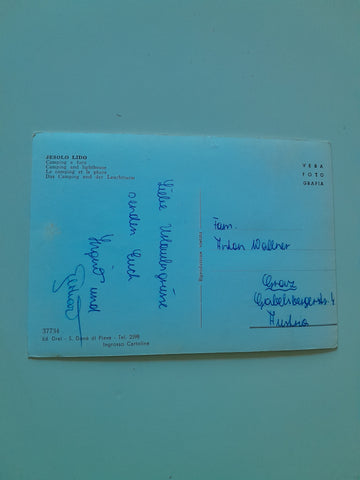 JESOLO LIDO
Camping e faro
Camping and lighthouse
Le camping et le phare
Das Camping und der Leuchtturm
VERA
FOTO
GRAFIA
Liebe Urlaubsgrüsse
senden Euch
und
Riproduzione vietata
Fam.
Anton Wallner
Graz
Gabelsbergerstr. 4
Austria
37734
Ed. Orel - S. Donà di Piave - Tel. 2198
Ingrosso Cartoline